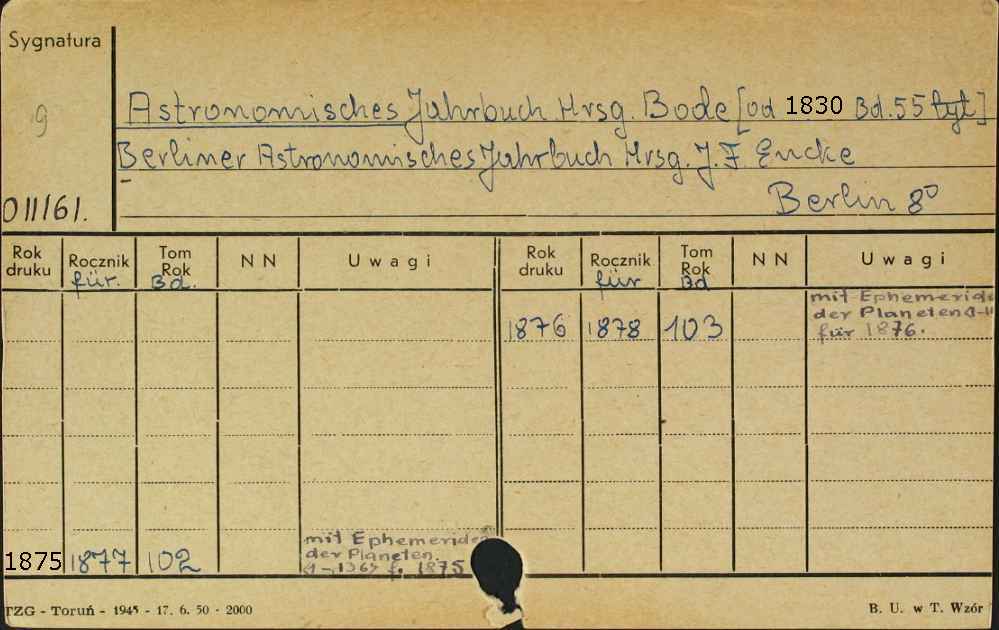 Sygnatura
9
Astronomisches Jahrbuch Hrsg. Bode [od 1830 Bd. 55 tyt]
Berliner Astronomisches Jahrbuch Hrsg. J. F. Encke
Berlin 8°
011/61.
Rok druku Rocznik für. Tom Rok Bd. NN Uwagi Rok druku Rocznik für Tom Rok Bd NN Uwagi
1876 1878 103 mit Ephemeride
der Planeten
für 1876.
1875 1877 102 mit Ephemeride
der Planeten.
f. 1875
TZG - Toruń - 1945 - 17. 6. 50 - 2000
B. U. w T. Wzór